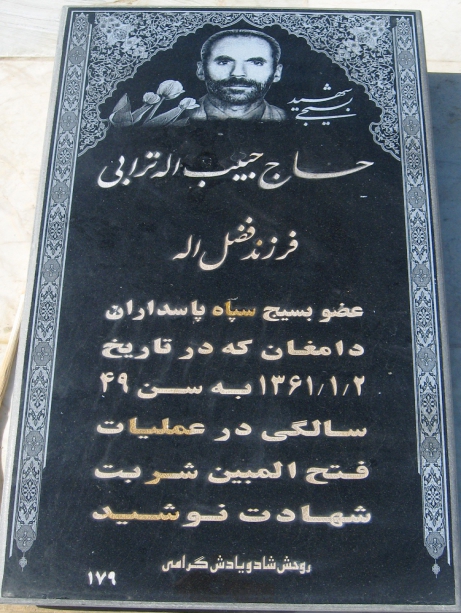 شهید
بسیجی
حاج حبیب اله ترابی
فرزند فضل اله
عضو بسیج سپاه پاسداران
دامغان که در تاریخ
۱۳۶۱/۱/۲ به سن ۴۹
سالگی در عملیات
فتح المبین شربت
شهادت نوشید
روحش شاد و یادش گرامی
۱۷۹